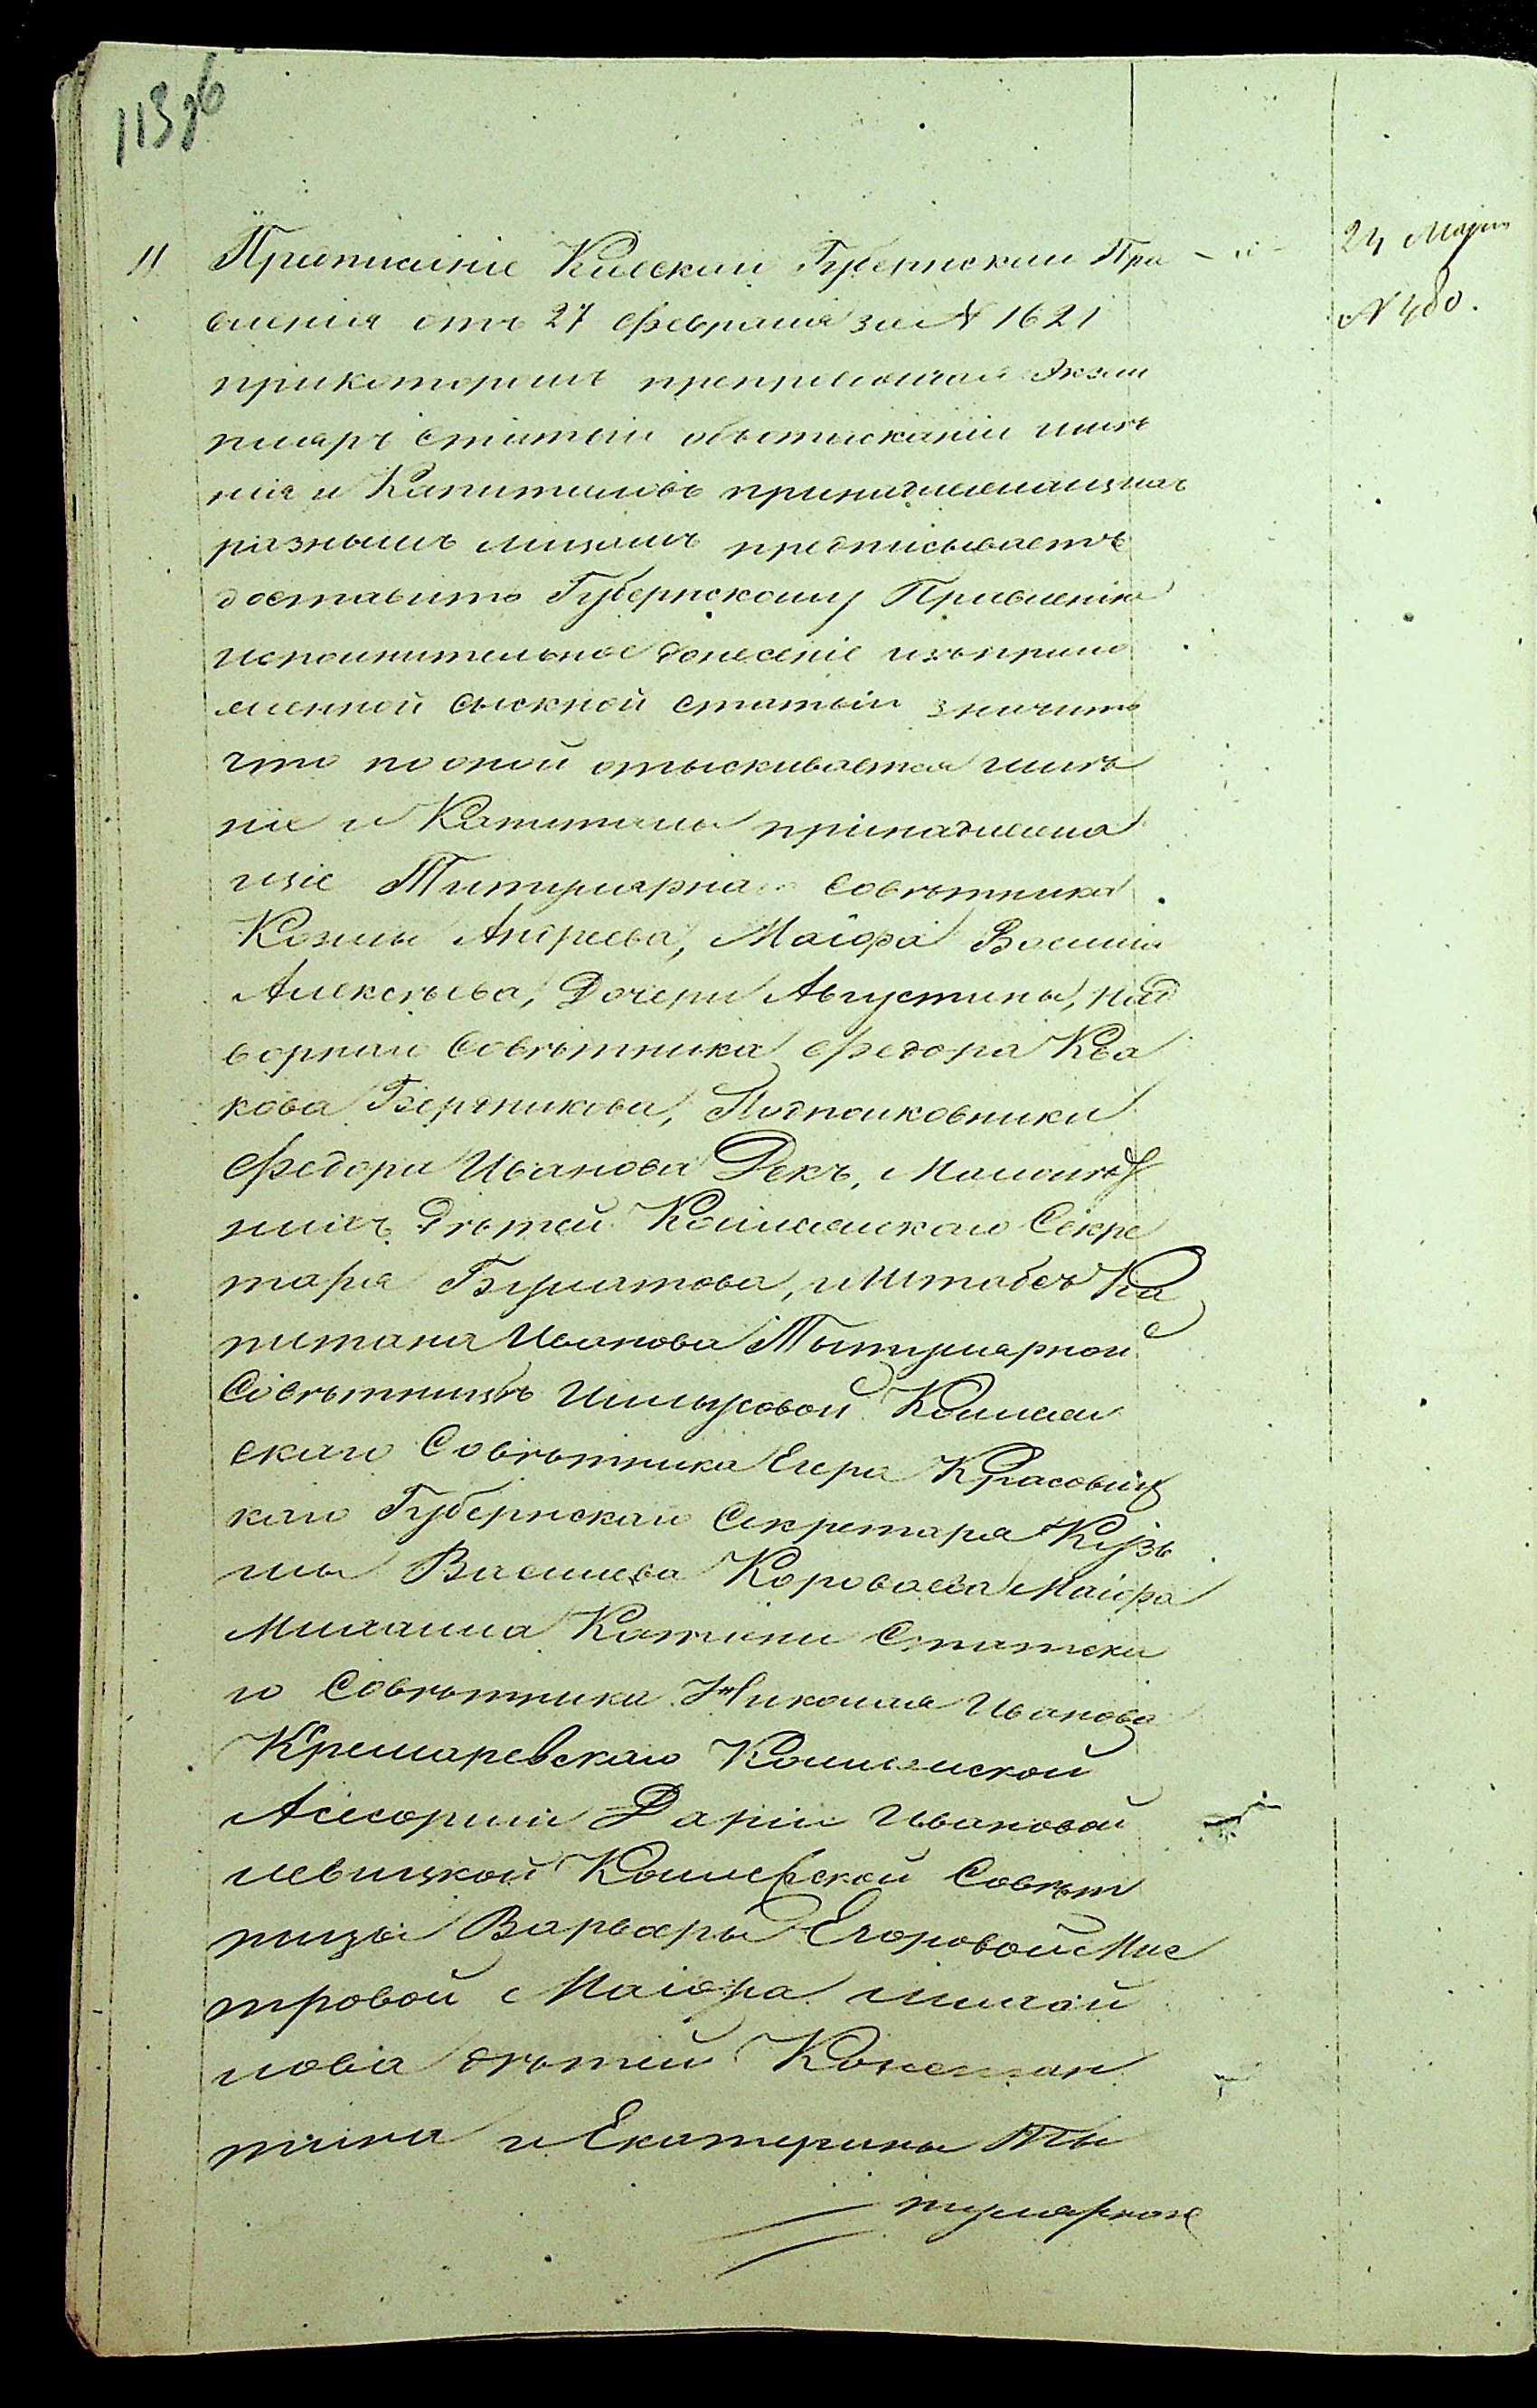 113 об
11 Предписаніе Киевскаго Губернскаго Пра
24 Марта
вленія отъ 27 февраля за № 1621
№ 480.
прикоторомъ препровождая Экзем
пляръ статьи объотысканіи имѣ
нія и Капиталовъ принадлежащихъ
разнымъ лицамъ предписываетъ
доставить Губернскому Правленію
исполнительное донесеніе изъприло
женной сыскной статьи значитъ
что пооной отыскивается имѣ
ніе и Капиталы принадлежа
щіе Титулярнаго Совѣтника
Козмы Андреева, Маіора Василія
Алексѣева, Дочери Августины, Над
ворнаго Совѣтника Федора Ква
кова Бердникова, Подполковника
Федора Иванова Декъ, Малолѣт
нихъ Дѣтей Коллежскаго Секре
таря Булатова, и Штабсъ Ка
питана Иванова Титулярной
Совѣтницѣ Коллеж
скаго Совѣтника Егора Красовиц
каго Губернскаго Секретаря Кузь
мы Василиева Короваева Маіора
Михаила Катани Статска
го Совѣтника Николая Иванова
Кремаревскаго Коллежской
Асесорши Даріи Ивановой
левицкой Коллежской Совѣт
ницы Варвары Егоровой Мис
тровой Маіора Михай
лова дѣтей Констан
тина и Екатерины Ти
тулярной